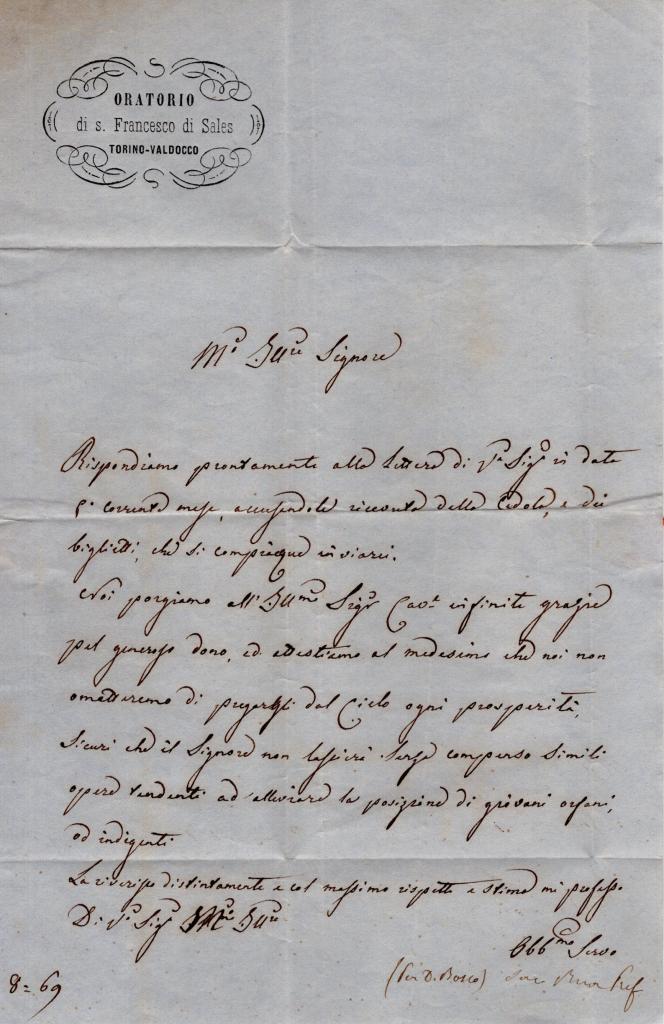 ORATORIO
di s. Francesco di Sales
TORINO-VALDOCCO
M.º Ill.re Signore
Rispondiamo prontamente alla lettera di V.a Sig.a in data
corrente mese, accusandole ricevuta della Cedola, e dei
biglietti, che si compiacque inviarci.
Noi porgiamo all' Ill.mo Sig.r Cav.e infinite grazie
pel generoso dono, ed attestiamo al medesimo che noi non
ometteremo di pregargli dal Cielo ogni prosperità,
sicuri che il Signore non lascierà senza compenso simili
opere tendenti ad alleviare la posizione di giovani orfani,
od indigenti.
La riverisco distintamente e col massimo rispetto e stima mi professo
Di V.a Sig.a M.to Ill.re
Obb.mo Servo
(Per D. Bosco) Pref
8=69